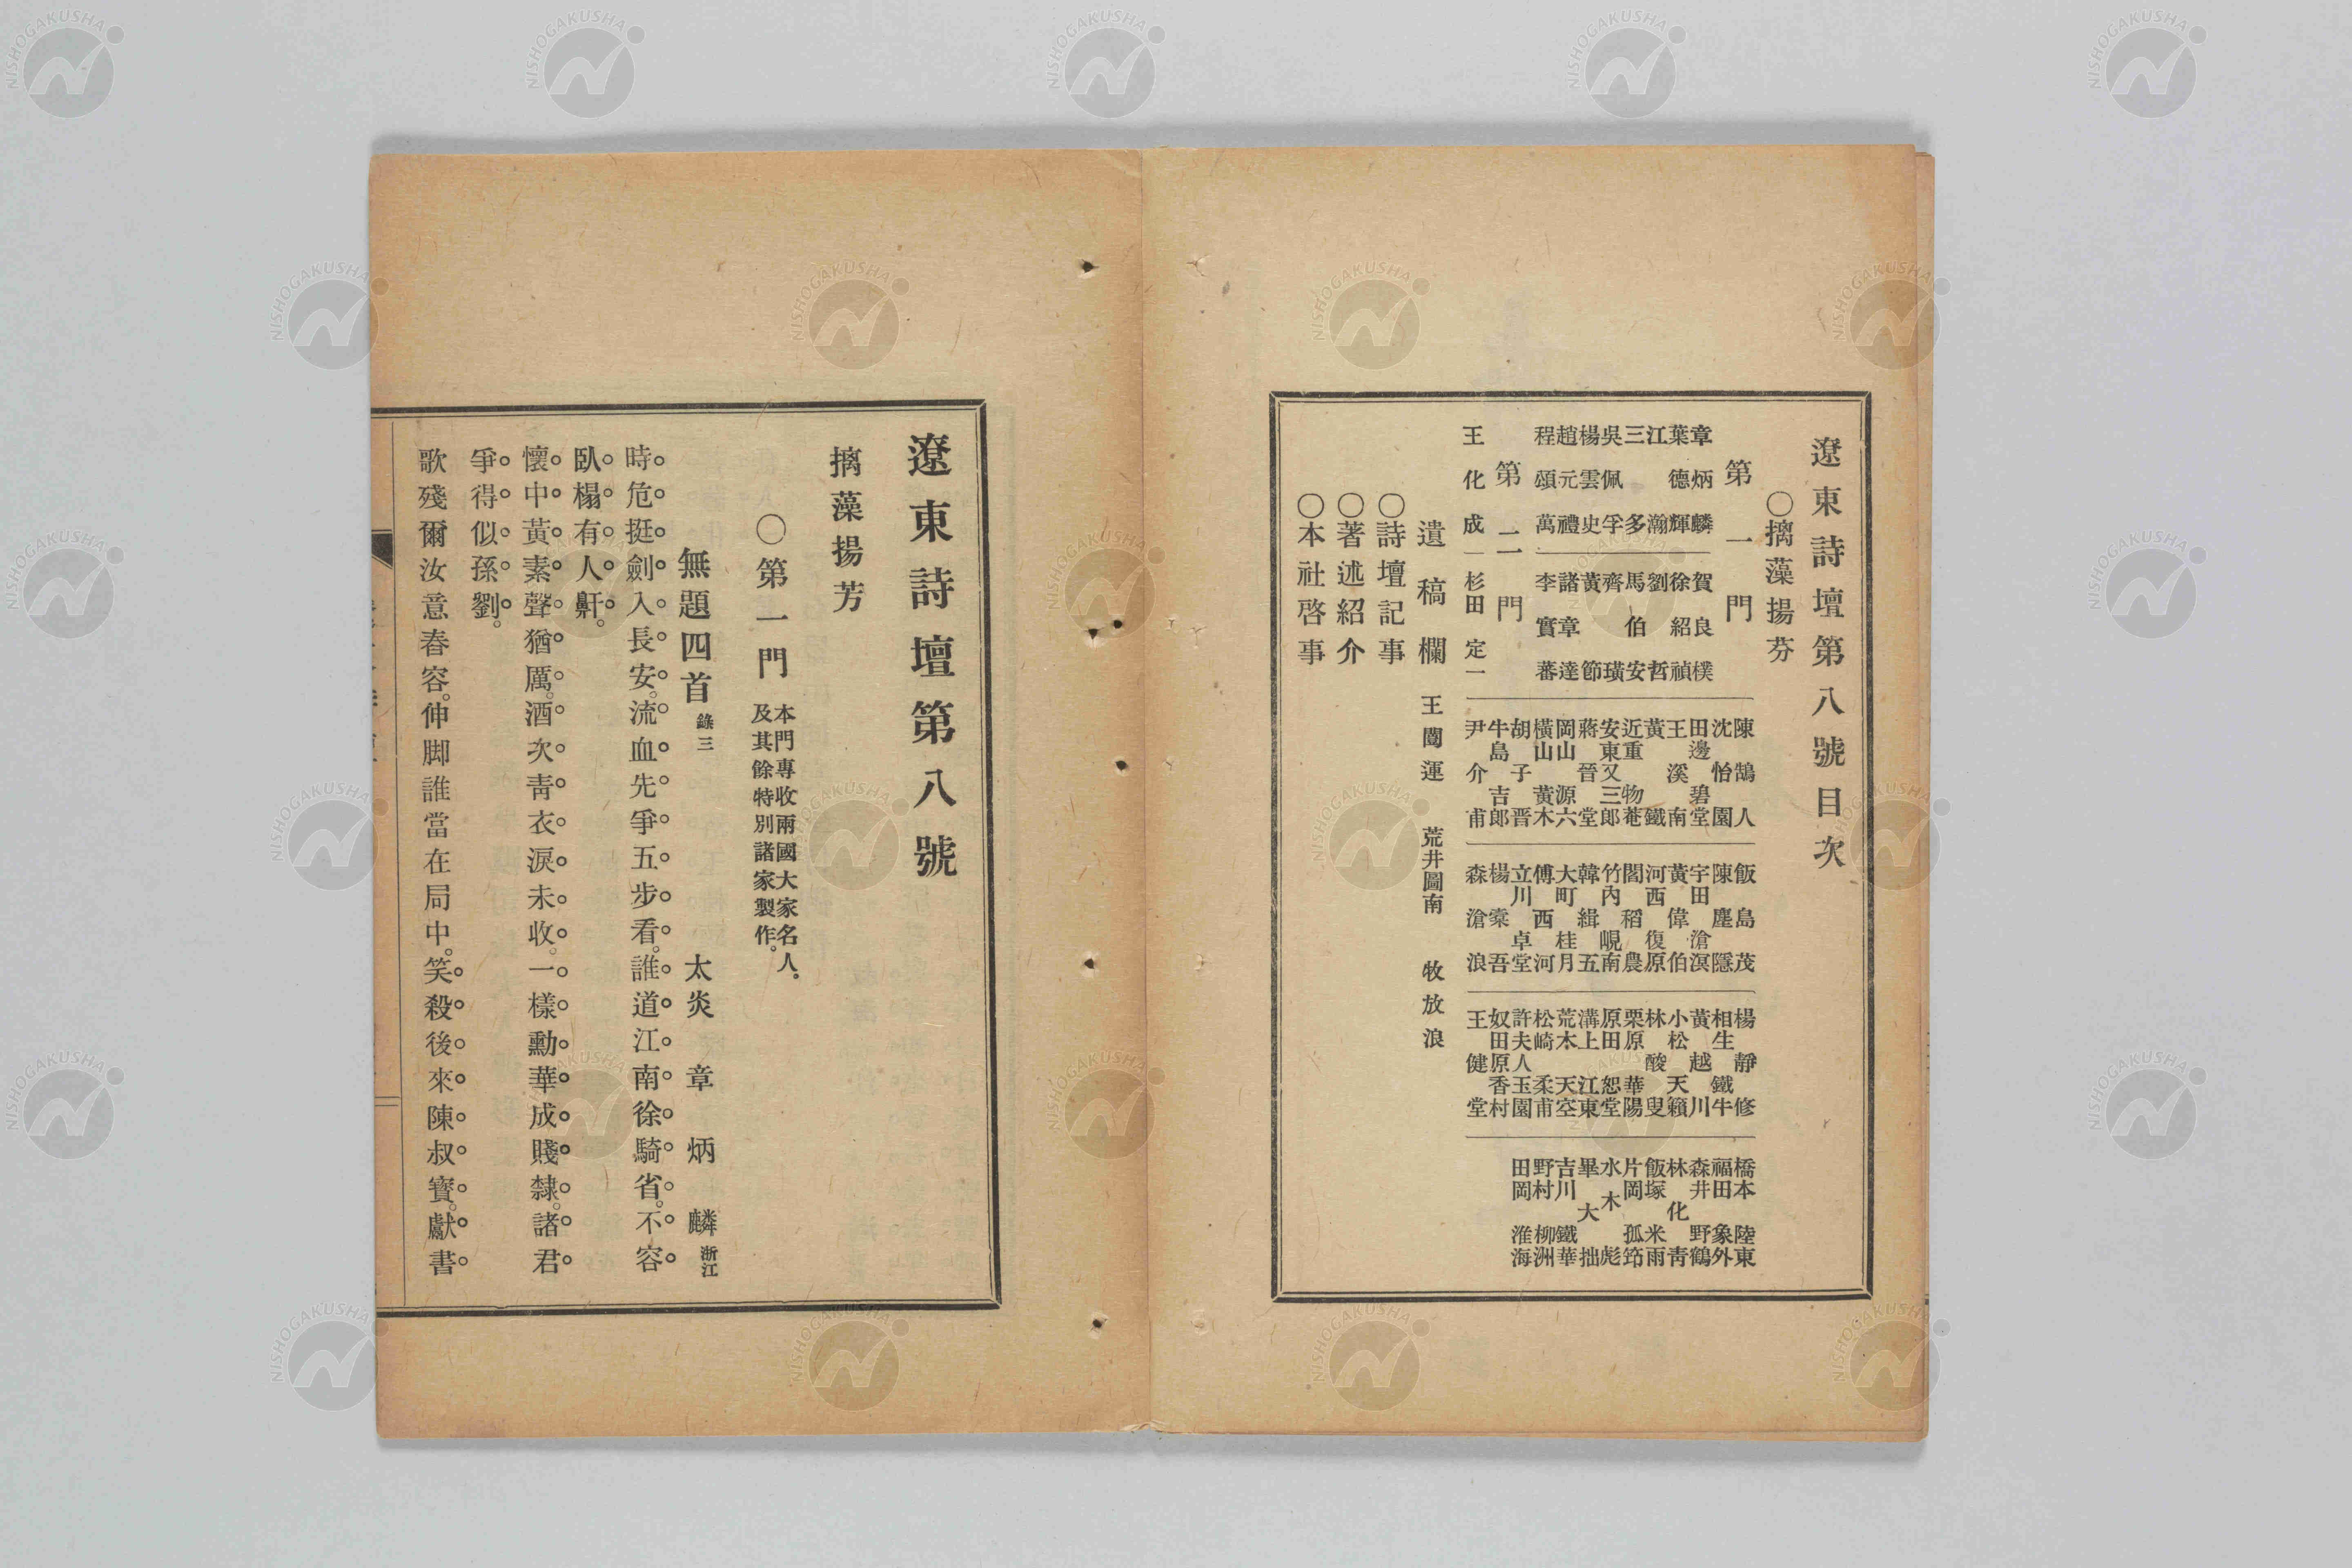 遼東詩壇第八號目次
○摛藻揚芬
第一門
章炳麟
葉德輝
江瀚
三多
吳佩孚
楊雲史
趙元禮
程頌萬
賀良樸
徐紹禎
劉哲
馬伯安
齊璜
黃節
諸章達
李實蕃
第二門
王化成
杉田定一
陳鵠人
沈怡園
田邊碧堂
王溪南
黃鐵
近重物菴
安東又三郎
蔣晉堂
岡山源六
橫山黃木
胡子晋
牛島吉郎
尹介甫
飯島茂
陳塵隱
宇田滄溟
黃偉伯
河西復原
閻稻農
竹內峴南
韓緝五
大町桂月
傅西河
立川卓堂
楊槖吾
森滄浪
楊靜修
相生鐵牛
黃越川
小松天籟
林酸叟
栗原華陽
原田恕堂
溝上江東
荒木天空
松崎柔甫
許夫人玉園
奴田原香村
王健堂
橋本陸東
福田象外
森井野鶴
林化靑
飯塚米雨
片岡孤筇
水木彪
畢大拙
吉川鐵華
野村柳洲
田岡淮海
遺稿欄 王闓運 荒井圖南 牧放浪
○詩壇記事
○著述紹介
○本社啓事
遼東詩壇第八號
摛藻揚芳
○第一門 本門專收兩國大家名人。
及其餘特別諸家製作。
無題四首 錄三 太炎 章炳麟 浙江
時危挺劍入長安。流血先爭五步看。誰道江南徐騎省。不容
臥榻有人鼾。
懷中黃素聲猶厲。酒次靑衣淚未收。一樣勳華成賤隸。諸君
爭得似孫劉。
歌殘爾汝意春容。伸脚誰當在局中。笑殺後來陳叔寶。獻書
NISHOGAKUSHA